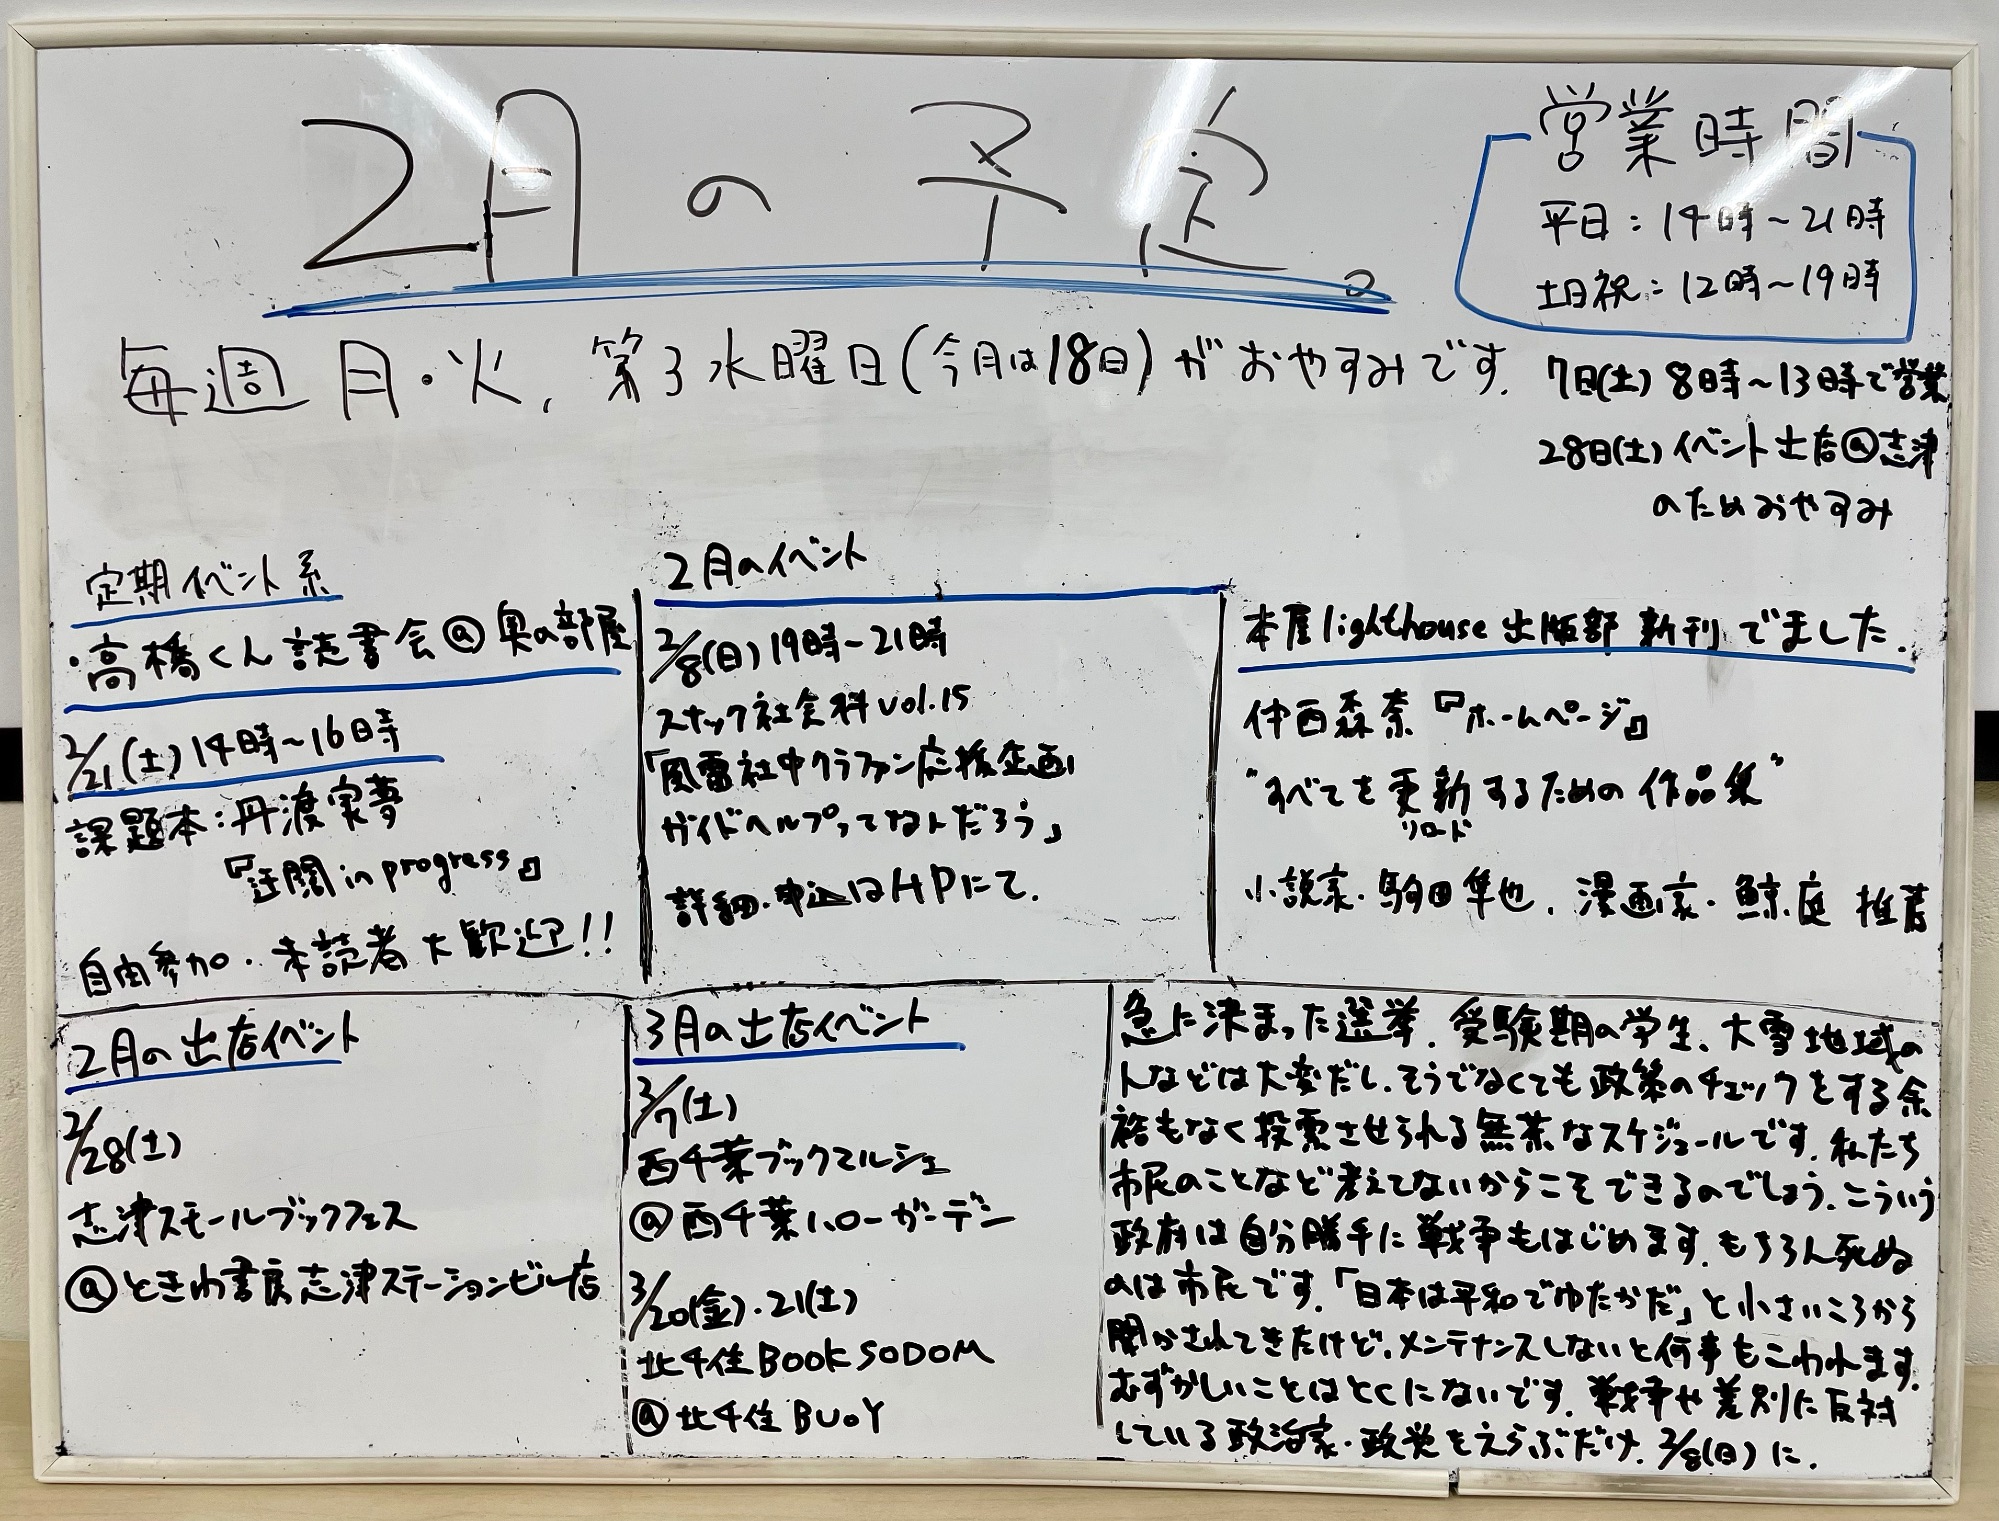 2月の予定。
営業時間
平日：14時〜21時
土日祝：12時〜19時
毎週月・火、第3水曜日(今月は18日)がおやすみです。
7日(土) 8時〜13時で営業
28日(土)イベント出店@志津
のためおやすみ
定期イベント系
・高橋くん読書会@奥の部屋
2/21(土)14時〜16時
課題本：丹渡実夢
『訪問 in progress』
自由参加・未読者大歓迎!!
2月のイベント
2/8(日)19時〜21時
スナック社会科vol.15
「風雷社中クラファン応援企画
ガイドヘルプってなんだろう」
詳細・申込はHPにて.
本屋lighthouse出版部 新刊でました.
仲西森奈『ホームページ』
"すべてを更新するための作品集"
リロード
小説家・駒田隼也、漫画家・鯨庭 推薦
2月の出店イベント
2/28(土)
志津スモールブックフェス
@ときわ書房志津ステーションビル店
3月の出店イベント
3/7(土)
西千葉ブックマルシェ
@西千葉ハローガーデン
3/20(金)・21(土)
北千住BOOK SODOM
@北千住BUoY
急に決まった選挙。受験期の学生、大雪地域の
人などは大変だし、そうでなくても政策のチェックをする余
裕もなく投票させられる無茶なスケジュールです。私たち
市民のことなど考えてないからこそできるのでしょう。こういう
政府は自分勝手に戦争もはじめます。もちろん死ぬ
のは市民です。「日本は平和でゆたかだ」と小さいころから
聞かされてきたけど、メンテナンスしないと何事もこわれます。
むずかしいことはとくにないです。戦争や差別に反対
している政治家・政党をえらぶだけ。2/8(日)に.